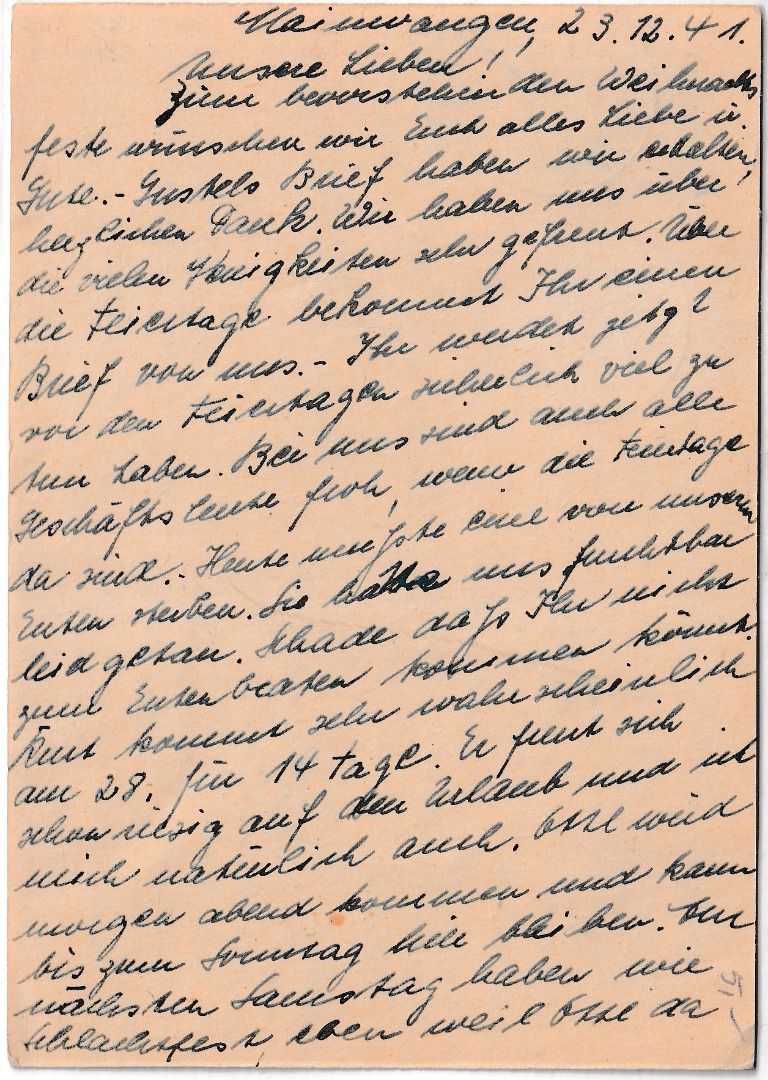 Mainwangen, 23.12.41.
Unsere Lieben!
Zum bevorstehenden Weihnachts
feste wünschen wir Euch alles Liebe u.
Gute. - Gustels Brief haben wir erhalten,
herzlichen Dank. Wir haben uns über
die vielen Neuigkeiten sehr gefreut. Über
die Feiertage bekommt Ihr einen
Brief von uns. - Ihr werdet jetzt
vor den Feiertagen sicherlich viel zu
tun haben. Bei uns sind auch alle
Geschäftsleute froh, wenn die Feiertage
da sind. - Heute musste eine von unseren
Enten sterben. Sie hatte uns furchtbar
leid getan. Schade dass Ihr nicht
zum Entenbraten kommen könnt.
Kurt kommt sehr wahrscheinlich
am 28. für 14 Tage. Er freut sich
schon riesig auf den Urlaub und ich
mich natürlich auch. Otto wird
morgen abend kommen und kann
bis zum Sonntag hier bleiben. Am
nächsten Samstag haben wir
Schlachtfest, eben weil Otto da